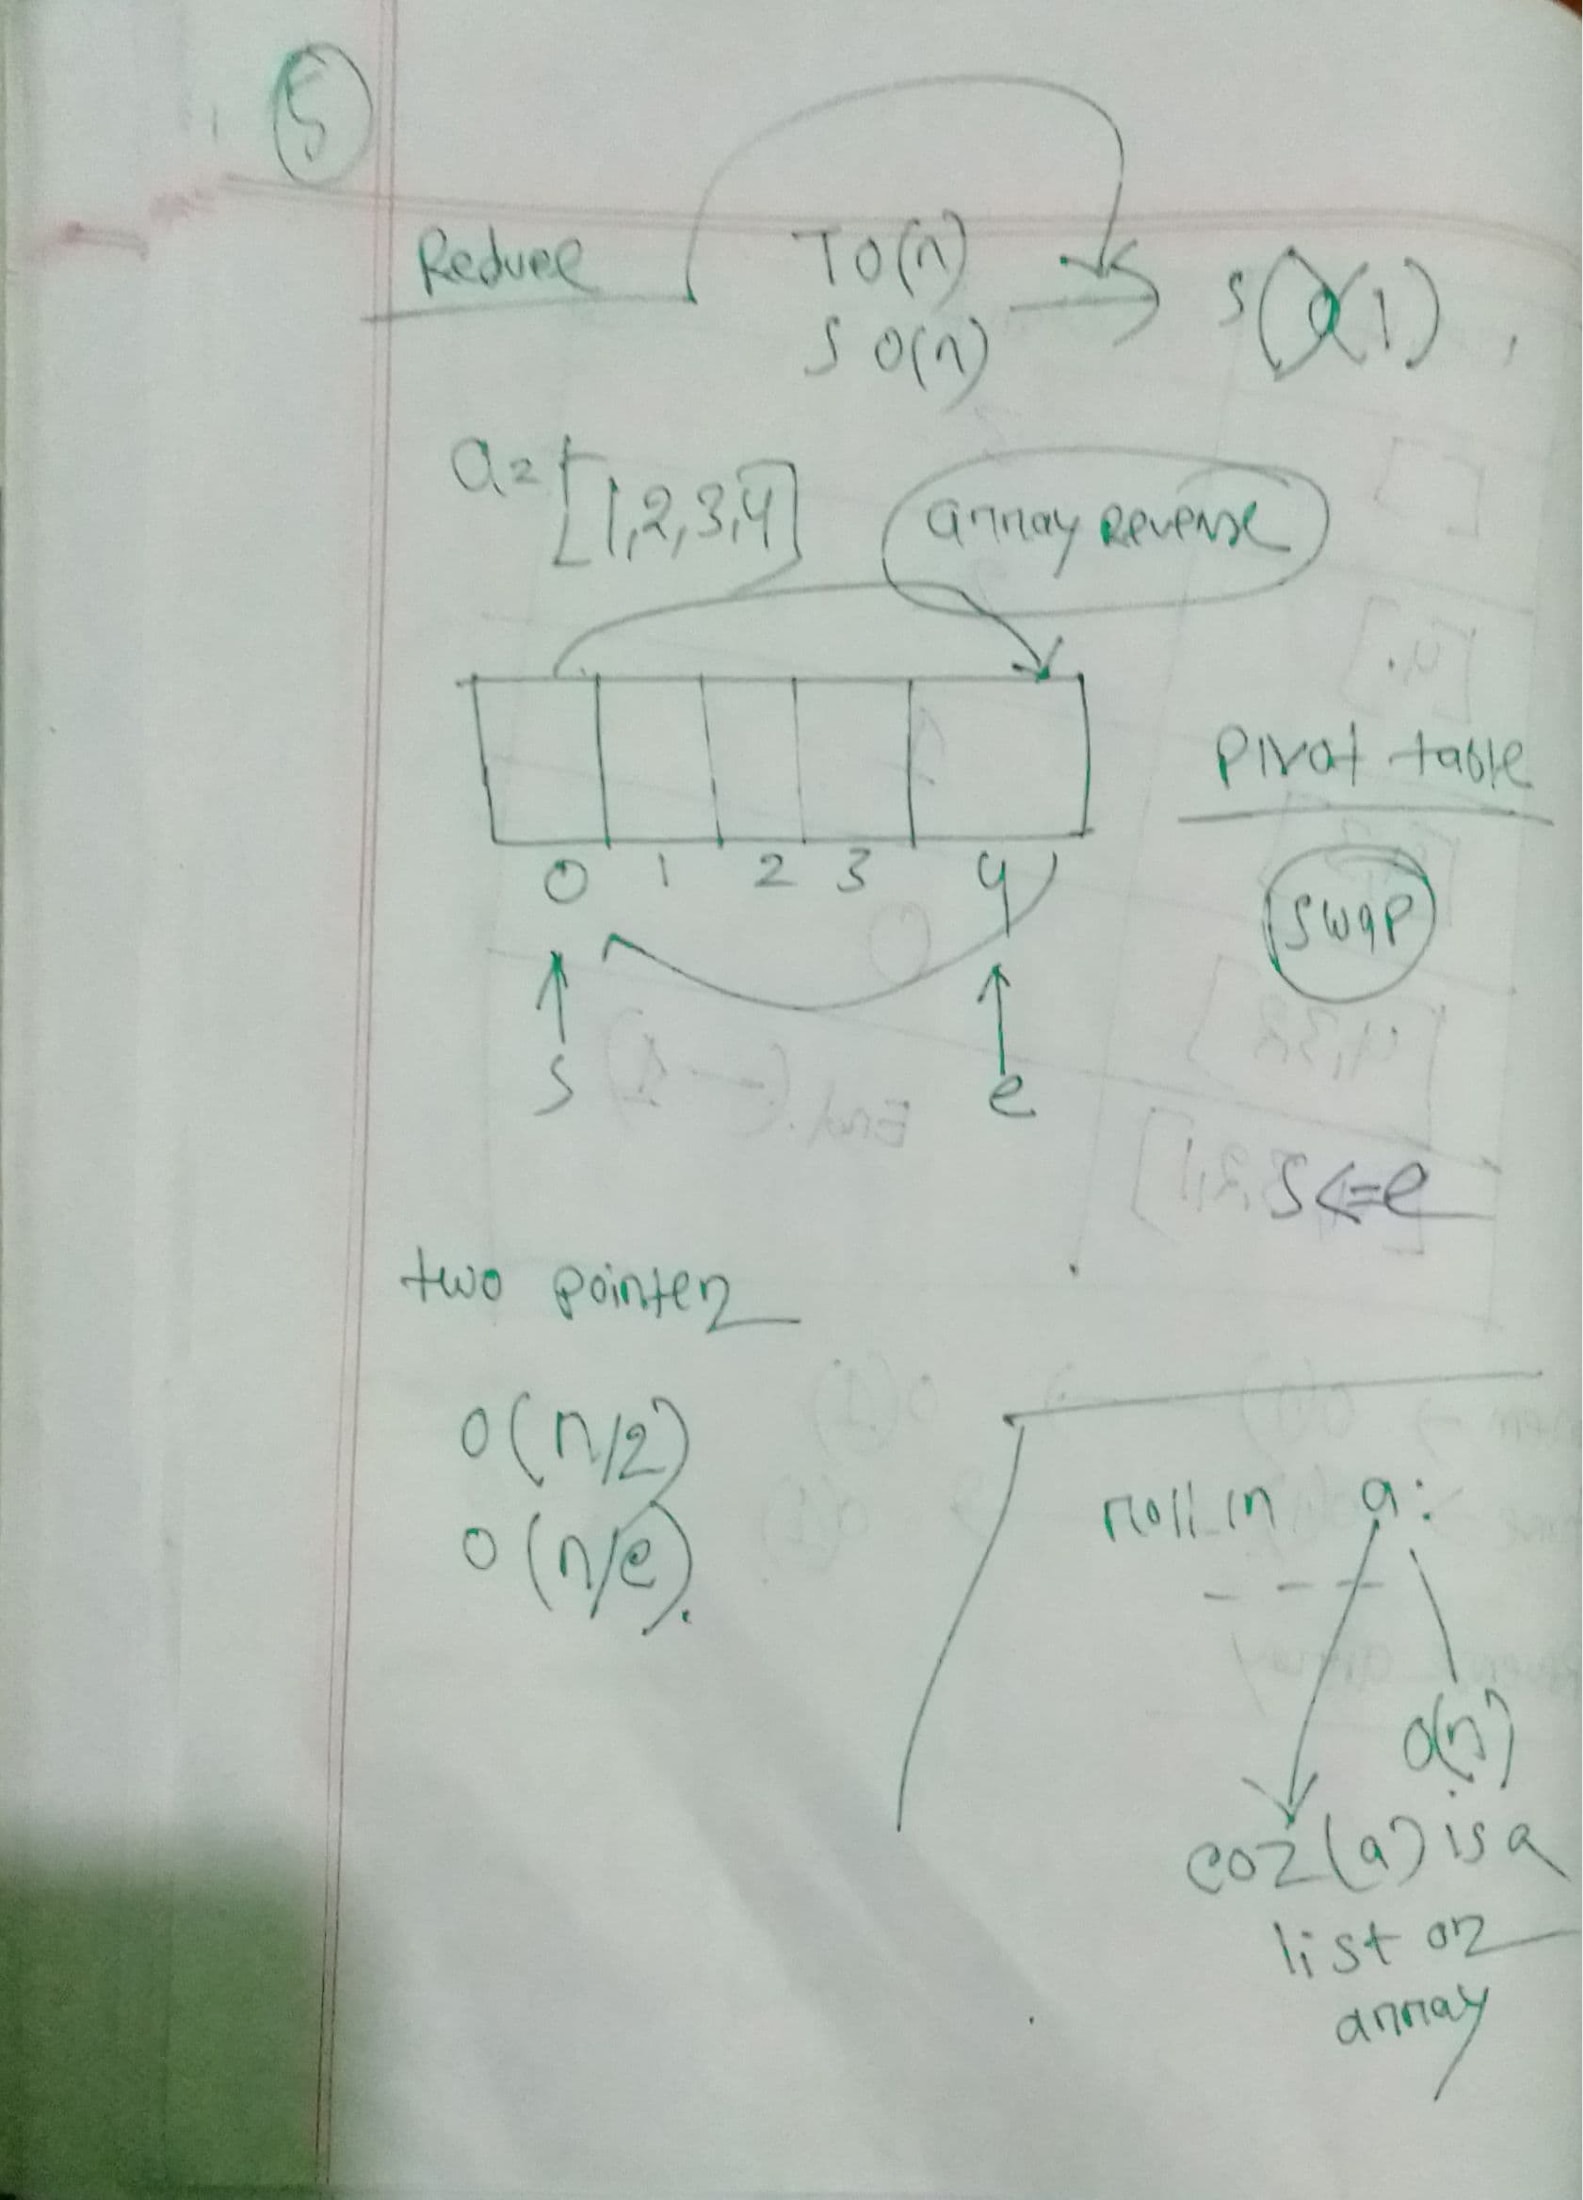 5
Reduce
TO(n)
S O(n)
S O(1)
a=[1,2,3,4]
array Reverse
0 1 2 3 4
Pivot table
swap
s
e
s<=e
two pointer
O(n/2)
O(n/e).
in a:
- - -
O(n)
coz (a) is a
list or
array